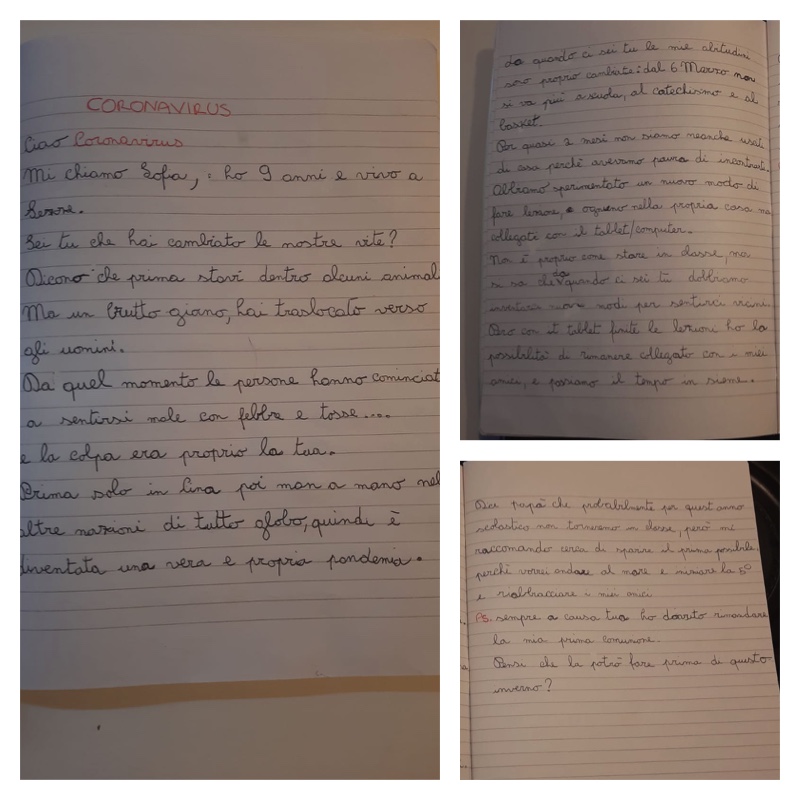 CORONAVIRUS
Ciao Coronavirus
Mi chiamo Sofia, ho 9 anni e vivo a
Sei tu che hai cambiato le nostre vite?
Dicono che prima stavi dentro alcuni animal
Ma un brutto giorno, hai traslocato verso
gli uomini.
Da quel momento le persone hanno cominciat
a sentirsi male con febbre e tosse....
e la colpa era proprio la tua.
Prima solo in Cina poi man a mano nel
altre nazioni di tutto globo, quindi è
diventata una vera e propria pandemia.
da quando ci sei tu le mie abitudini
sono proprio cambiate: dal 6 Marzo non
si va più a scuola, al catechismo e al
basket.
Per quasi 2 mesi non siamo neanche usciti
di casa perchè avevamo paura di incontrarti.
Abbiamo sperimentato un nuovo modo di
fare lezione, e ognuno nella propria casa ma
collegati con il tablet/computer.
Non è proprio come stare in classe, ma
si sa che da quando ci sei tu dobbiamo
modi per sentirci vicini.
Però con il tablet finite le lezioni ho la
possibilità di rimanere collegato con i miei
amici, e passiamo il tempo in sieme.
papà che probabilmente per quest anno
scolastico non torneremo in classe, però mi
raccomando cerca di sparire il prima possibile,
perchè vorrei andare al mare e iniziare la 5°
e riabbracciare i miei amici.
PS. sempre a causa tua ho dovuto rimandare
la mia prima comunione.
Pensi che la potrò fare prima di questo
inverno?